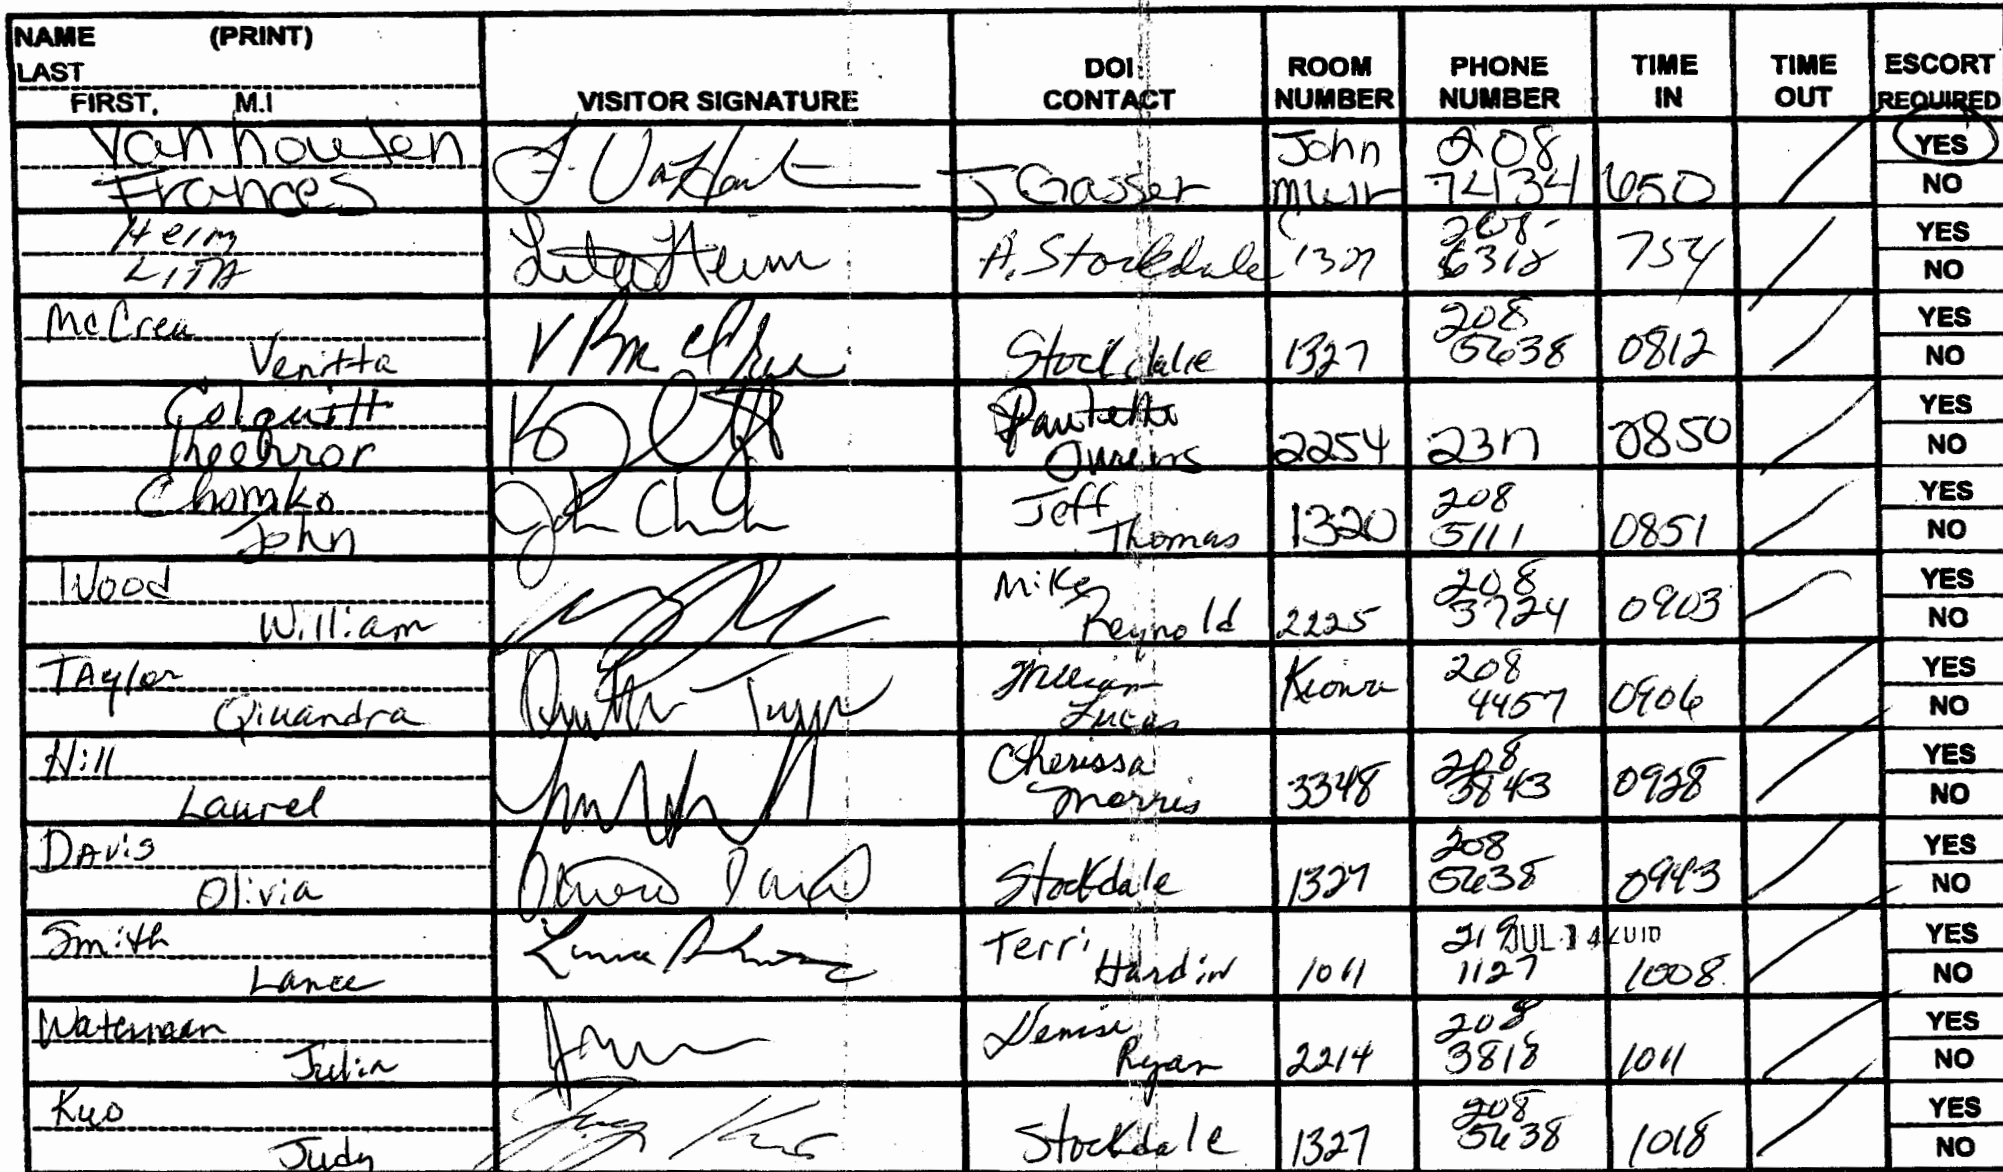 NAME (PRINT)
LAST
FIRST, M.I
VISITOR SIGNATURE
DOI CONTACT
ROOM NUMBER
PHONE NUMBER
TIME IN
TIME OUT
ESCORT REQUIRED
Van houten
Frances
J Gasser
John Muir
208 7434
650
YES
NO
Heim
LITA
Lita Heim
A. Stockdale
1327
208- 6312
754
YES
NO
McCrea
Venitta
Stockdale
1327
208 5638
0812
YES
NO
Colquitt
Owens
2254
0850
YES
NO
Chomko
John
Jeff Thomas
1320
208 5111
0851
YES
NO
Wood
William
Mike Reynold
2225
208 3724
0903
YES
NO
TAylor
Qiuandra
Lucas
208 4457
0906
YES
NO
Hill
Laurel
Cherissa Morris
3348
208 3843
0928
YES
NO
DAvis
Olivia
Stockdale
1327
208 5638
0943
YES
NO
Smith
Lance
Terri Hardin
1011
219 1127
JUL 14 2010
1008
YES
NO
Waterman
Julia
Denise Ryan
2214
208 3818
1011
YES
NO
Kuo
Judy
Stockdale
1327
208 5638
1018
YES
NO